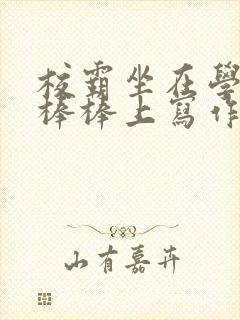 校霸坐在學
棒棒上寫作
山有嘉卉